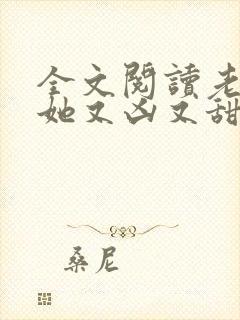 全文閱讀老
她又凶又甜
桑尼